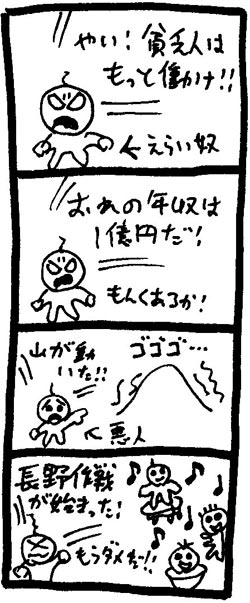 やい！貧乏人は
もっと働かけ!!
←えらい奴
おれの年収は
1億円だ！
もんくあるか！
山が動
いた!!
ゴゴゴ…
←悪人
長野作戦
が始まった！
もうダメだー!!